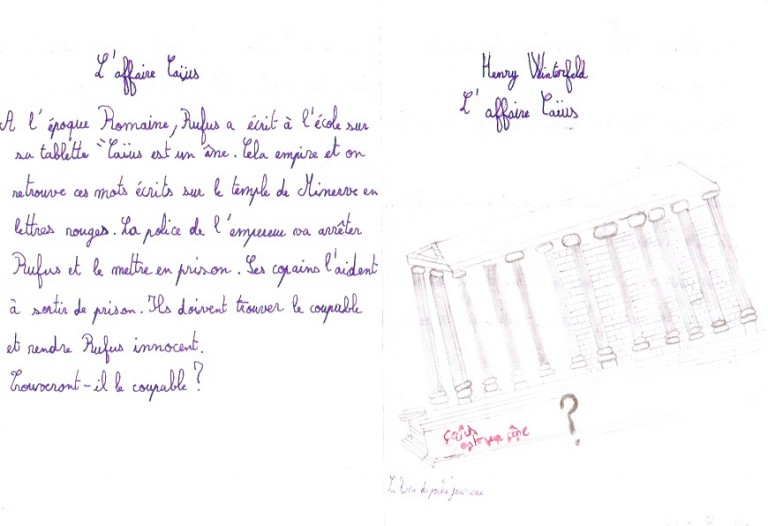 L'affaire Caïus
A l'époque Romaine, Rufus a écrit à l'école sur
sa tablette "Caïus est un âne. Cela empire et on
retrouve ces mots écrits sur le temple de Minerve en
lettres rouges. La police de l'empereur va arrêter
Rufus et le mettre en prison. Ses copains l'aident
à sortir de prison. Ils doivent trouver le coupable
et rendre Rufus innocent.
Trouveront-il le coupable ?
Henry Winterfeld
L'affaire Caïus
?
Caïus
est un âne
Le livre de poche jeunesse